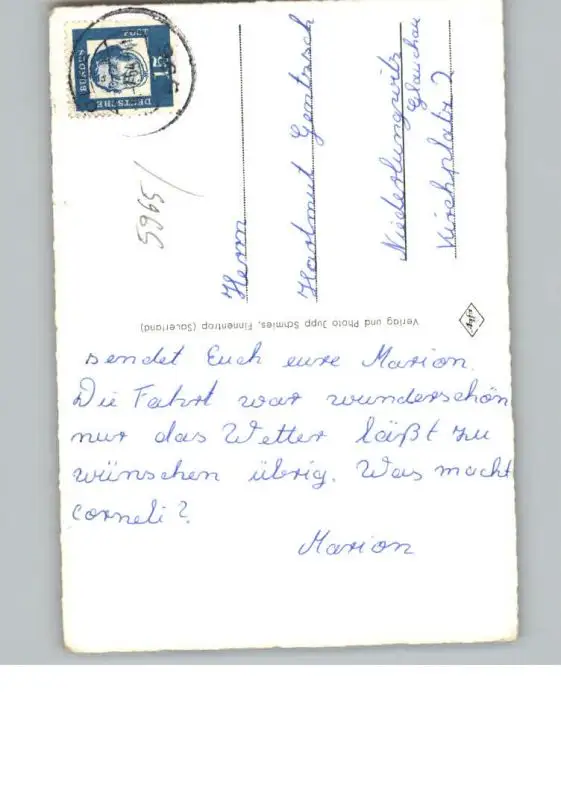 DEUTSCHE
BUNDES
POST
15
5965/
Herrn
Hartmut Gentzsch
Niederlungwitz
Glauchau
Kirchplatz 2
Verlag und Photo Jupp Schmies, Finnentrop (Sauerland)
sendet Euch eure Marion.
Die Fahrt war wunderschön
nur das Wetter läßt zu
wünschen übrig. Was macht
Corneli?
Marion